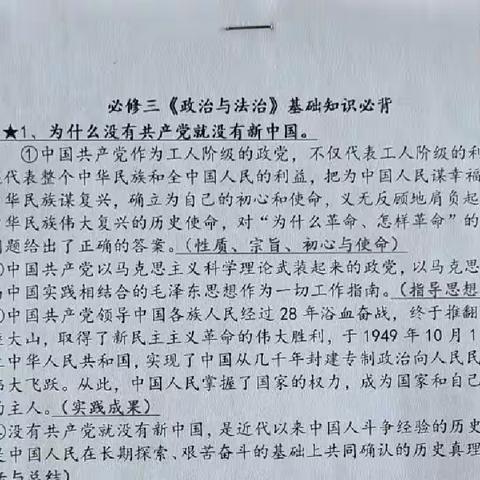 必修三《政治与法治》基础知识必背
★1、为什么没有共产党就没有新中国。
①中国共产党作为工人阶级的政党，不仅代表工人阶级的利
代表整个中华民族和全中国人民的利益，把为中国人民谋幸福
华民族谋复兴，确立为自己的初心和使命，义无反顾地肩负起
华民族伟大复兴的历史使命，对“为什么革命、怎样革命”的
题给出了正确的答案。（性质、宗旨、初心与使命）
中国共产党以马克思主义科学理论武装起来的政党，以马克思
中国实践相结合的毛泽东思想作为一切工作指南。（指导思想
中国共产党领导中国各族人民经过 28 年浴血奋战，终于推翻
大山，取得了新民主主义革命的伟大胜利，于 1949 年 10 月 1
中华人民共和国，实现了中国从几千年封建专制政治向人民民
大飞跃。从此，中国人民掌握了国家的权力，成为国家和自己
主人。（实践成果）
没有共产党就没有新中国，是近代以来中国人斗争经验的历史
是中国人民在长期探索、艰苦奋斗的基础上共同确认的历史真理
与总结）